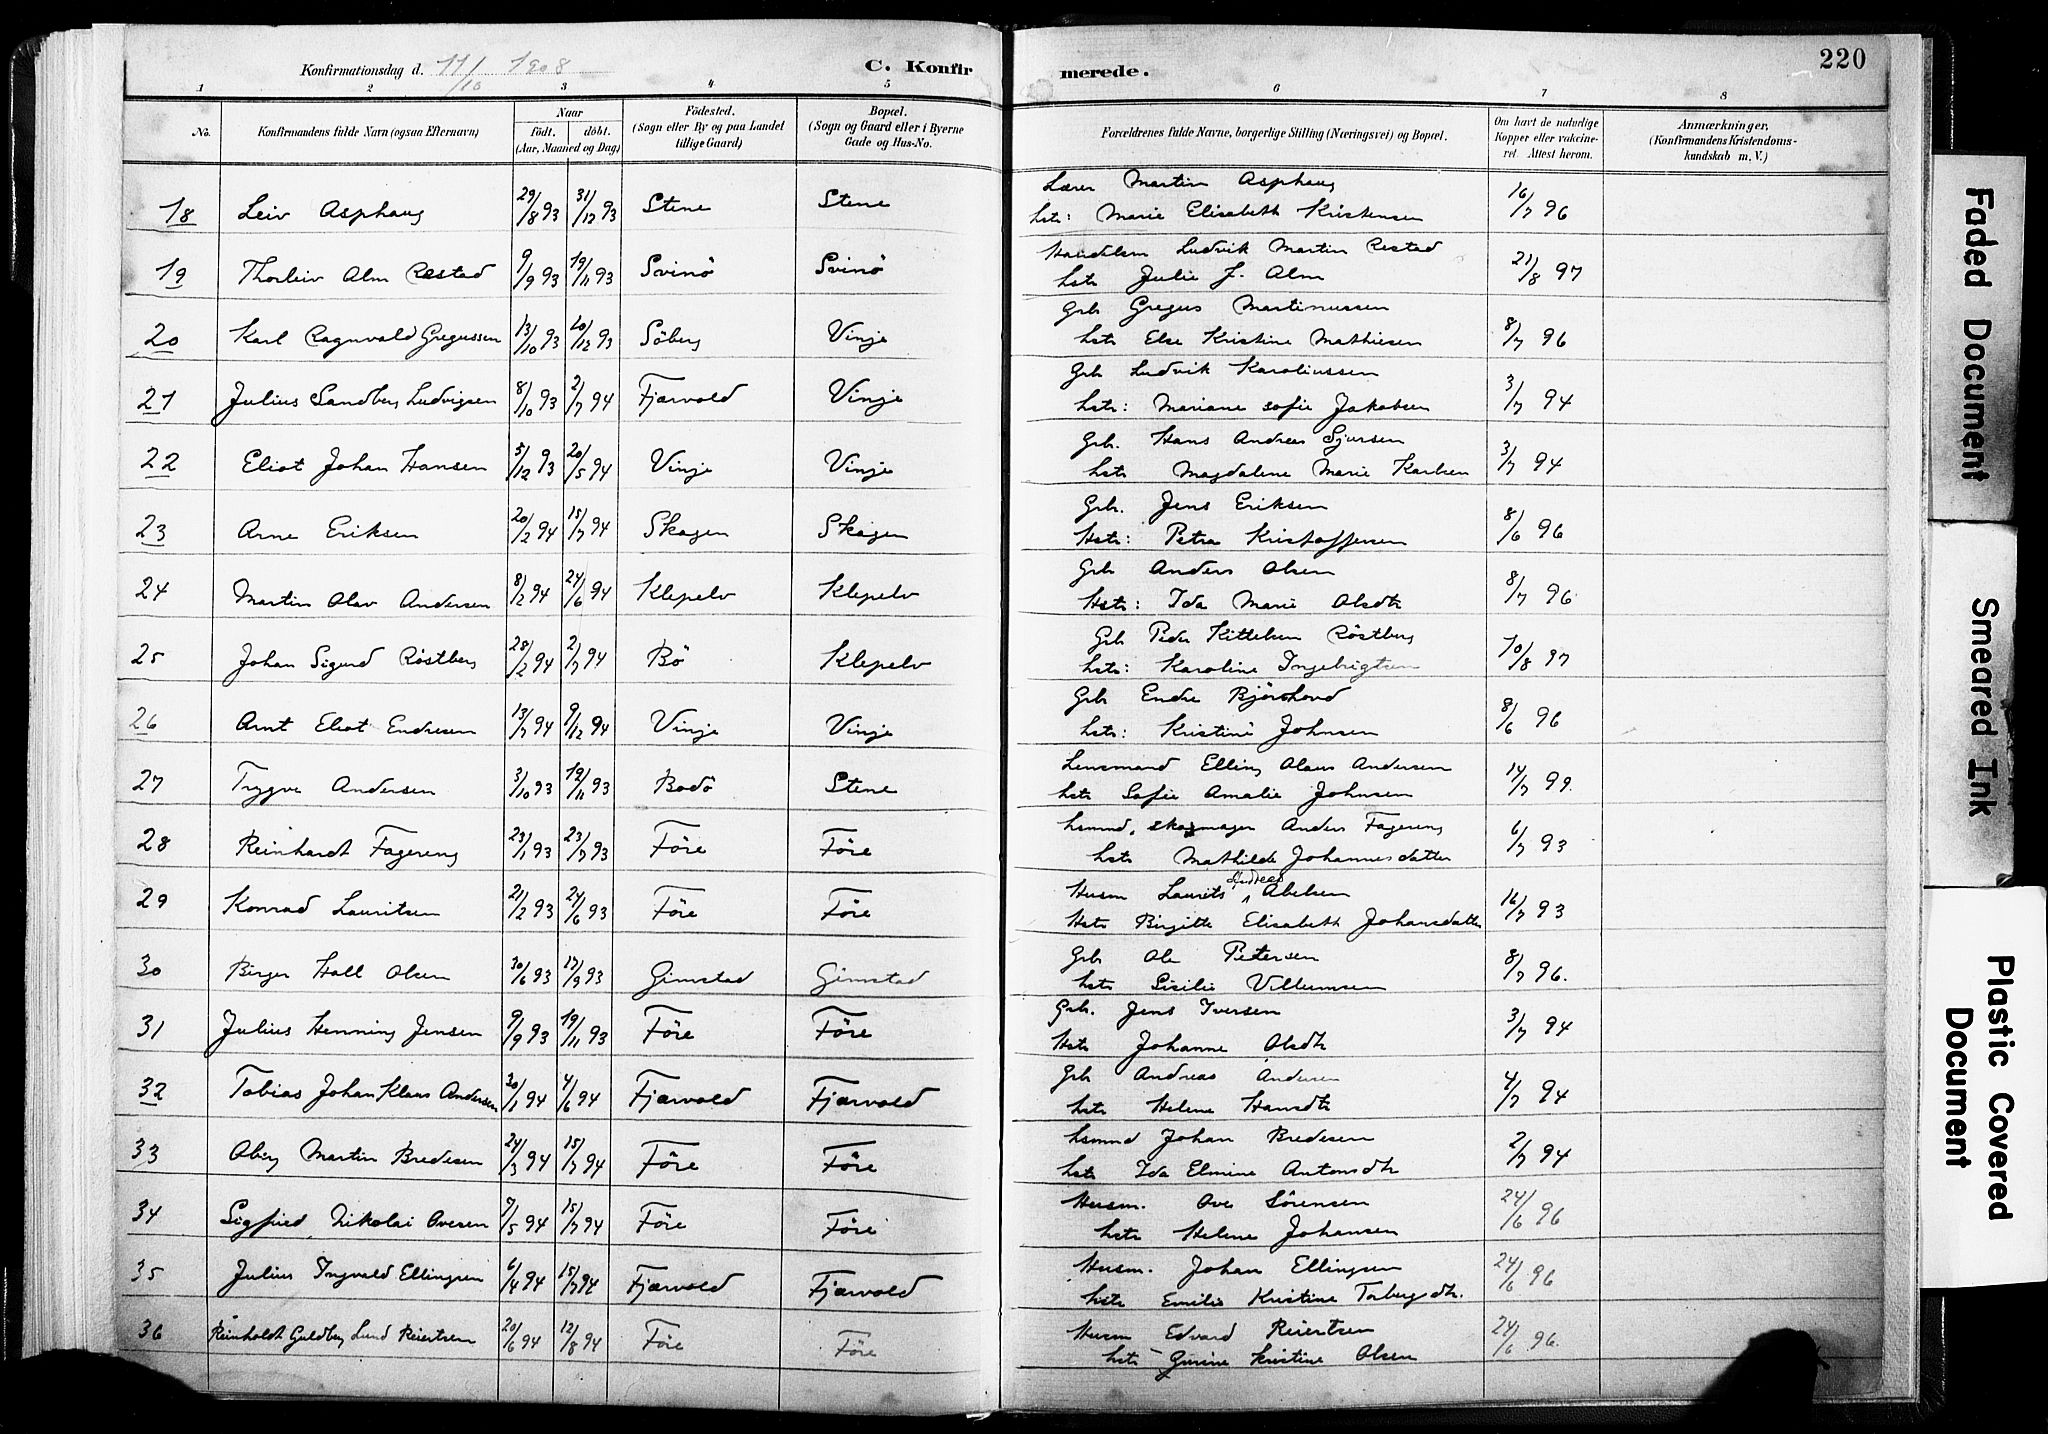 220
Konfirmationsdag d. 11/10 1908
C. Konfirmerede.
1 2 3 4 5 6 7 8
No.
Konfirmandens fulde Navn (ogsaa Efternavn)
Naar
født. døbt.
(Aar, Maaned og Dag)
Fødested.
(Sogn eller By og paa Landet
tillige Gaard)
Bopæl.
(Sogn og Gaard eller i Byerne
Gade og Hus-No.
Forældrenes fulde Navne, borgerlige Stilling (Næringsvei) og Bopæl.
Om havt de naturlige
Kopper eller vakcine-
ret Attest herom.
Anmærkninger,
(Konfirmandens Kristendoms-
kundskab m. V.)
18 Leiv Asphaug 29/8 93 31/12 93 Stene Stene Lærer Martin Asphaug 16/7 96
hstr: Marie Elisabeth Kristensen
19 Thorleiv Alm Restad 9/9 93 19/11 93 Svinö Svinö Handelsm Ludvik Martin Restad 21/8 97
hstr Julie J. Alm
20 Karl Ragnvald Gregussen 13/10 93 20/12 93 Söberg Vinje Grb Gregus Martinussen 8/7 96
hstr Else Kristine Mathiesen
21 Julius Sandberg Ludvigsen 8/10 93 2/7 94 Fjærvold Vinje Grb Ludvik Karoliussen 3/7 94
hstr: Mariane Sofie Jakobsen
22 Eliot Johan Hansen 5/12 93 20/5 94 Vinje Vinje Grb. Hans Andreas Sjursen 3/7 94
hstr Magdalene Marie Karlsen
23 Arne Eriksen 20/2 94 15/7 94 Skagen Skagen Grb. Jens Eriksen 8/6 96
Hstr: Petra Kristoffersen
24 Martin Olav Andersen 8/2 94 24/6 94 Klepelv Klepelv Grb Anders Olsen 8/7 96
Hstr: Ida Marie Olsdtr
25 Johan Sigurd Röstberg 28/2 94 2/7 94 Bö Klepelv Grb Peder Kittelsen Röstberg 10/8 97
hstr: Karoline Ingebrigtsen
26 Arnt Eliot Endresen 13/7 94 9/12 94 Vinje Vinje Grb Endre Björshovd 8/6 96
hstr: Kristine Johnsen
27 Trygve Andersen 3/10 93 19/11 93 Bodö Stene Lensmand Elling Olaus Andersen 14/7 99.
hstr Sofie Amalie Johnsen
28 Reinhardt Fagereng 23/1 93 23/7 93 Före Före hsmnd, skomager Anders Fagereng 6/7 93
hstr Mathilde Johannesdatter
29 Konrad Lauritsen 21/2 93 24/6 93 Före Före Husm Laurits Andreas Abelsen 16/7 93
Hstr Birgitte Elisabeth Johansdatter
30 Birger Hall Olsen 30/6 93 17/9 93 Gimstad Gimstad Grb Ole Petersen 8/7 96.
hstr Sisilie Villumsen
31 Julius Henning Jensen 9/9 93 19/11 93 Före Före Grb. Jens Iversen 3/7 94
Hstr Johanne Olsdtr
32 Tobias Johan Klaus Andersen 30/1 94 4/6 94 Fjærvold Fjærvold Grb Andreas Andersen 4/7 94
hstr Helene Hansdtr
33 Oberg Martin Bredesen 24/3 94 15/7 94 Före Före hsmnd Johan Bredesen 2/7 94
hstr Ida Elmine Antonsdtr
34 Sigfried Nikolai Ovesen 7/5 94 15/7 94 Före Före Husm. Ove Sörensen 24/6 96
hstr Helene Johansen
35 Julius Ingvald Ellingsen 6/4 94 15/7 94 Fjærvold Fjærvold Husm. Johan Ellingsen 24/6 96
hstr Emilie Kristine Torbergsdtr.
36 Reinholdt Guldberg Lund Reiertsen 20/6 94 12/8 94 Före Före Husm Edvard Reiertsen 24/6 96.
hstr Gurine Kristine Olsen
Faded Document
Smeared Ink
Plastic Covered
Document